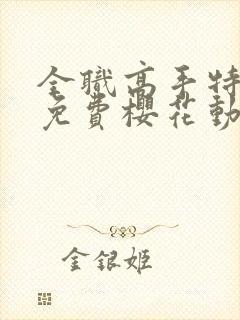 全職高手特
免費櫻花動
金銀姬